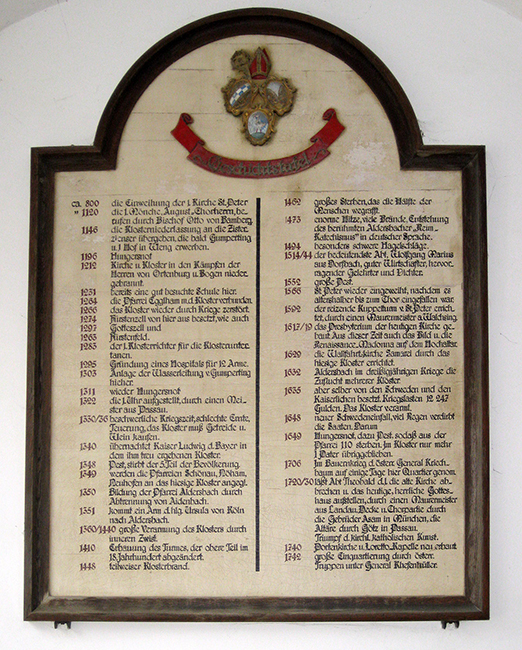 ca. 800 die Einweihung der 1. Kirche St. Peter
" 1120 die 1. Mönche, August. Chorherrn, be-
rufen durch Bischof Otto von Bamberg
1146 die Klosterniederlassung an die Zister-
zienser übergeben, die bald Gumperting
u. 1 Hof in Weng erwerben.
1196 Hungersnot
1212 Kirche u. Kloster in den Kämpfen der
Herren von Ortenburg u. Bogen nieder-
gebrannt.
1231 bereits eine gut besuchte Schule hier.
1264 die Pfarrei Egglham m.d. Kloster verbunden.
1266 das Kloster wieder durch Kriege zerstört.
1274 Fürstenzell von hier aus besetzt, wie auch
1297 Gotteszell und
1263 Fürstenfeld.
1285 der 1. Klosterrichter für die Klosterunter-
tanen.
1295 Gründung eines Hospitals für 12 Arme.
1303 Anlage der Wasserleitung v. Gumperting
hieher.
1311 wieder Hungersnot
1392 die 1. Uhr aufgestellt, durch einen Mei-
ster aus Passau.
1330/36 beschwerliche Kriegszeit, schlechte Ernte,
Teuerung, das Kloster muß Getreide u.
Wein kaufen.
1340 übernachtet Kaiser Ludwig d. Bayer in
dem ihm treu ergebenen Kloster.
1348 Pest, stirbt der 3. Teil der Bevölkerung.
1349 werden die Pfarreien Schönau, Nöham,
Neuhofen an das hiesige Kloster angegl.
1350 Bildung der Pfarrei Aldersbach durch
Abtrennung von Aidenbach.
1351 kommt ein Arm d. hlg. Ursula von Köln
nach Aldersbach.
1360/1440 große Verarmung des Klosters durch
inneren Zwist.
1410 Erbauung des Turmes, der obere Teil im
18. Jahrhundert abgeändert.
1448 teilweiser Klosterbrand.
1462 großes Sterben, das die Hälfte der
Menschen wegrafft.
1473 enorme Hitze, viele Brände, Entstehung
des berühmten Aldersbacher „Reim-
Katechismus" in deutscher Sprache.
1494 besonders schwere Hagelschläge.
1514/44 der bedeutendste Abt, Wolfgang Marius
aus Dorfbach, guter Wirtschafter, hervor-
ragender Gelehrter und Dichter.
1552 große Pest.
1566 St. Peter wieder eingeweiht, nachdem es
altershalber bis zum Chor eingefallen war.
1592 der reizende Kuppelturm v. St. Peter errich-
tet, durch einen Maurermeister a. Vilshing.
1617/19 das Presbyterium der heutigen Kirche ge-
baut. Aus dieser Zeit auch das Bild u. die
Renaissance-Madonna auf dem Hochaltar.
1629 die Wallfahrtskirche Samarei durch das
hiesige Kloster errichtet.
1632 Aldersbach im dreißigjährigen Kriege die
Zuflucht mehrerer Klöster.
1635 aber selber von den Schweden und den
Kaiserlichen besetzt. Kriegslasten 12 247
Gulden. Das Kloster verarmt.
1648 neuer Schwedeneinfall, viel Regen verdirbt
die Saaten. Darum
1649 Hungersnot, dazu Pest, sodaß aus der
Pfarrei 110 sterben. Im Kloster nur mehr
1 Pater übriggeblieben.
1706 Im Bauernkrieg d. österr. General Kriech-
baum auf einige Tage hier Quartier genom.
1720/30 läßt Abt Theobald d. I. die alte Kirche ab-
brechen u. das heutige, herrliche Gottes-
haus aufstellen, durch einen Maurermeister
aus Landau. Decke u. Chorpartie durch
die Gebrüder Asam in München, die
Altäre durch Götz in Passau.
Triumpf d. kirchl. katholischen Kunst.
1740 Portenkirche u. Loretto-Kapelle neu erbaut
1742 große Einquartierung durch österr.
Truppen unter General Khefenhüller.